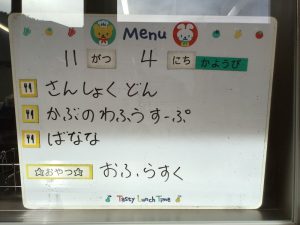 Menu
11 がつ 4 にち かようび
さんしょくどん
かぶのわふうすーぷ
ばなな
☆おやつ☆ おふらすく
Tasty Lunch Time